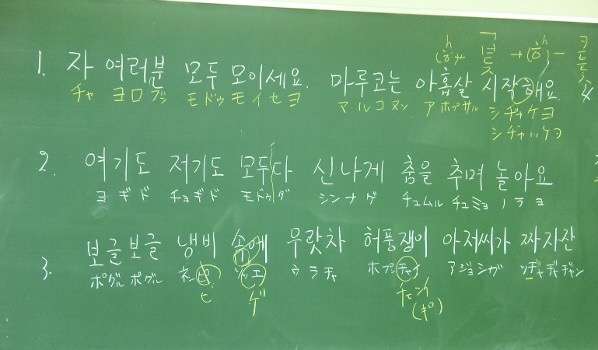 1. 자 여러분 모두 모이세요. 마루코는 아홉살 시작해요.
チャ ヨロブン モドゥ モイセヨ マルコヌン アホプサル シヂャケヨ
シヂャハケヨ
2. 여기도 저기도 모두다 신나게 춤을 추며 놀아요
ヨギド チョギド モドゥダ シンナゲ チュムル チュミョ ノラヨ
3. 보글보글 냄비 속에 우랏차 허풍쟁이 아저씨가 짜자잔
ポグルポグル ウラチャ アジョシガ
ビ ゲ チェンイ